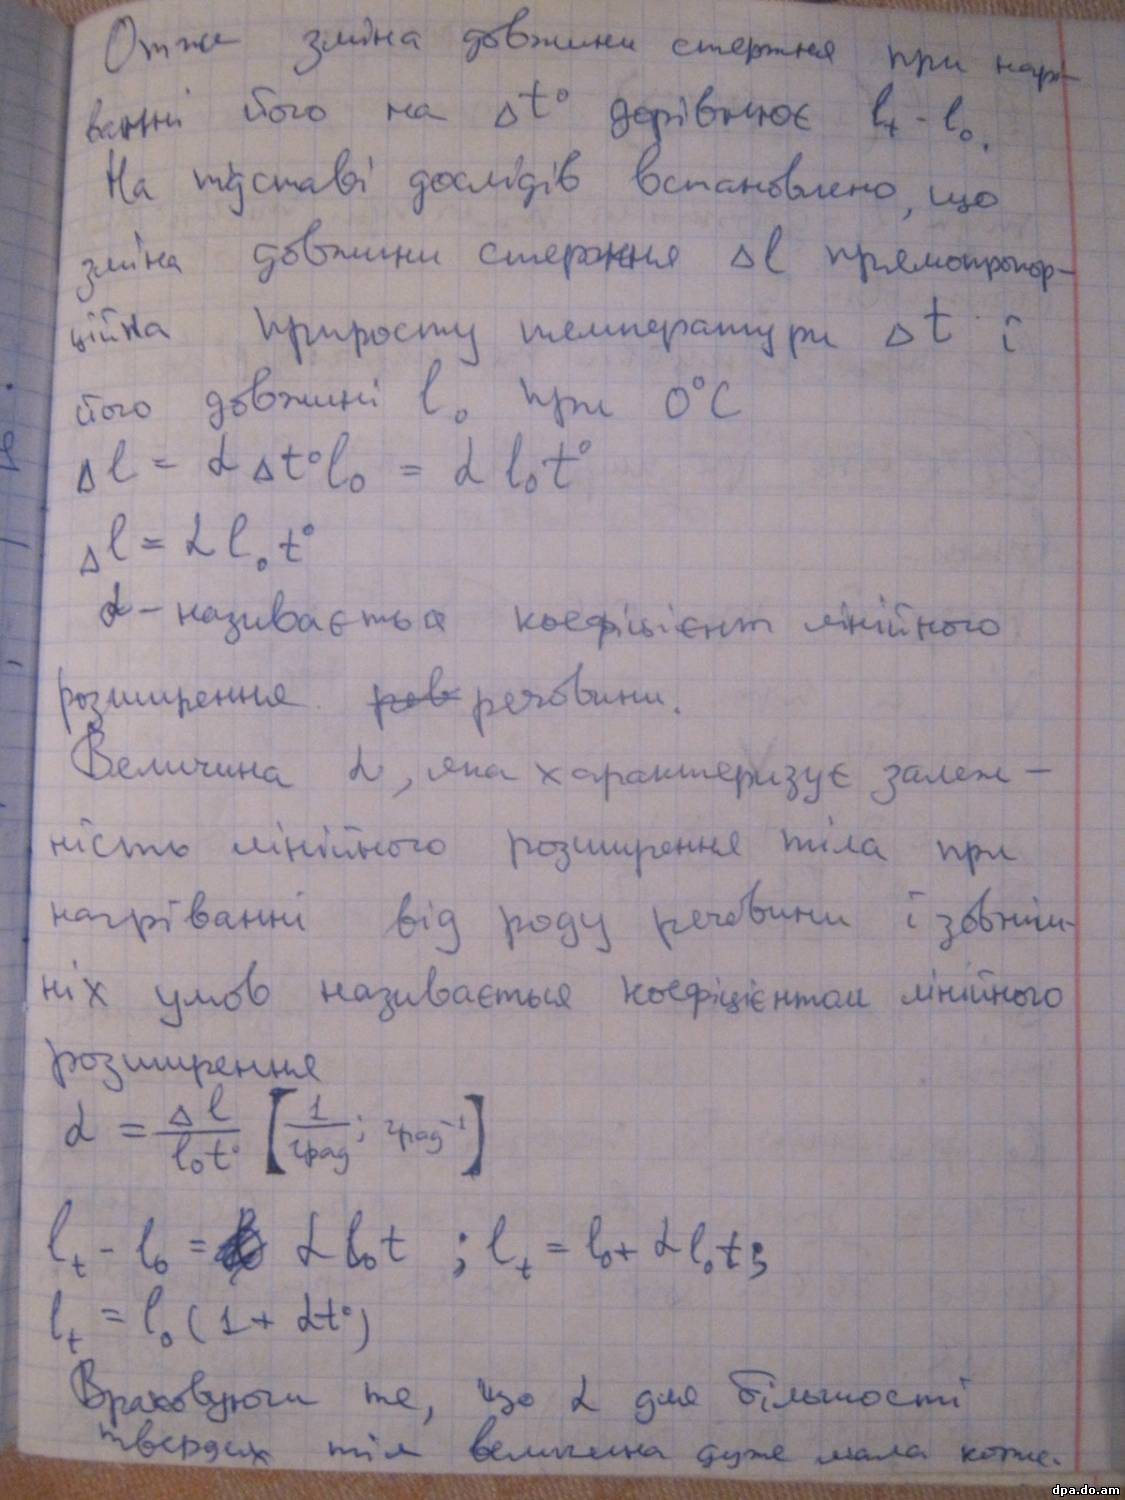 Отже зміна довжини стержня при нагрі-
ванні його на Δt° дорівнює lₜ - l₀.
На підставі дослідів встановлено, що
зміна довжини стержня Δl прямопропор-
ційна приросту температури Δt і
його довжині l₀ при 0°C
Δl = αΔt°l₀ = αl₀t°
Δl = αl₀t°
α - називається коефіцієнт лінійного
розширення речовини.
Величина α, яка характеризує залеж-
ність лінійного розширення тіла при
нагріванні від роду речовини і зовніш-
ніх умов називається коефіцієнтом лінійного
розширення
α = Δl/l₀t° [1/град; град⁻¹]
lₜ - l₀ = αl₀t ; lₜ = l₀ + αl₀t;
lₜ = l₀(1 + αt°)
Враховуючи те, що α для більшості
твердих тіл величина дуже мала
dpa.do.am